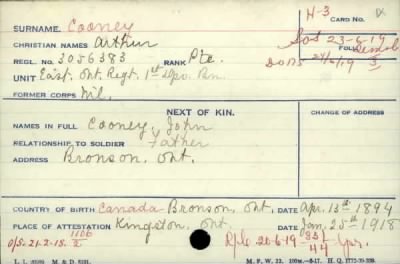 H-3 CARD NO.
SURNAME Cooney
CHRISTIAN NAMES Arthur
SOS 23-6-19
REGL. NO. 3056383 RANK Pte.
FOLL. Demob
DOBS 24/6/19
UNIT East. Ont. Regt. 1st Dpo. Bn.
FORMER CORPS Nil.
NEXT OF KIN. CHANGE OF ADDRESS
NAMES IN FULL Cooney, John
RELATIONSHIP TO SOLDIER Father
ADDRESS Bronson, Ont.
COUNTRY OF BIRTH Canada Bronson, Ont. DATE Apr. 13th 1894
PLACE OF ATTESTATION Kingston, Ont. DATE Jan. 25th 1918
O/S-21-2-18. 1106
R/C 20-6-19
44
M. F. W. 22.